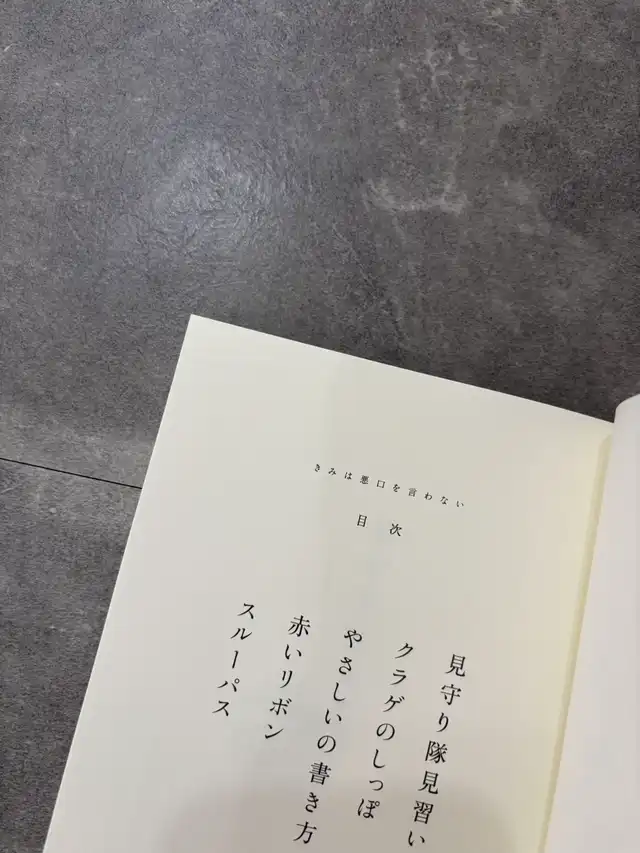 きみは悪口を言わない
目次
見守り隊見習い
クラゲのしっぽ
やさしいの書き方
赤いリボン
スルーパス